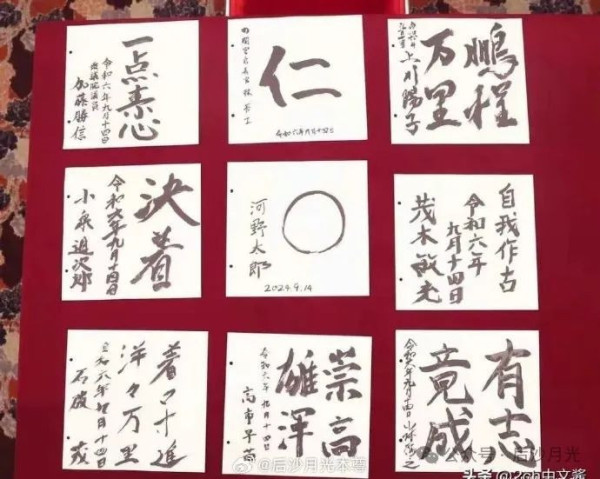 一点素心
令和六年九月十四日
衆議院議員
加藤勝信
仁
内閣官房長官 林芳正
令和六年九月十四日
鵬程
万里
上川陽子
決着
令和六年九月十四日
小泉進次郎
河野太郎
2024.9.14
自我作古
令和六年
九月十四日
茂木敏充
着々寸進
洋々万里
令和六年九月十四日
石破 茂
崇高
雄渾
令和六年九月十四日
高市早苗
有志
竟成
令和六年九月十四日 小林鷹之
@后沙月光本尊
公众号·后沙月光
头条@2ch中文酱